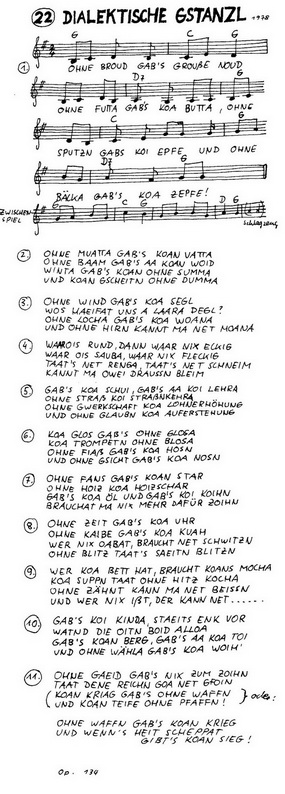 22 DIALEKTISCHE GSTANZL 1978
G C G
1. OHNE BROUD GAB'S GROUßE NOUD
D7 G
OHNE FUTTA GAB'S KOA BUTTA, OHNE
C G
SPUTZN GABS KOI EPFE, UND OHNE
D7 G
BÄLKA GAB'S KOA ZEPFE!
G C G D G
ZWISCHENSPIEL
Schlagzeug
2. OHNE MUATTA GAB'S KOAN VATTA
OHNE BAAM GAB'S AA KOAN WOID
WINTA GAB'S KOAN OHNE SUMMA
UND KOAN GSCHEITN OHNE DUMMA
3. OHNE WIND GAB'S KOA SEGL
WOS HAEIFAT UNS A LAARA DEGL?
OHNE LOCHA GAB'S KOA WOANA
UND OHNE HIRN KANNT MA NET MOANA
4. WAAR OIS RUND, DANN WAAR NIX ECKIG
WAAR OIS SAUBA, WAAR NIX FLECKIG
TAAT'S NET RENGA, TAAT'S NET SCHNEIM
KANNT MA OWEI DRAUSSN BLEIM
5. GAB'S KOA SCHUI, GAB'S AA KOI LEHRA
OHNE STRAß KOI STRAßNKEHRA
OHNE GWERKSCHAFT KOA LOHNERHÖHUNG
UND OHNE GLAUBN KOA AUFERSTEHUNG
6. KOA GLOS GAB'S OHNE GLOSA
KOA TROMPETN OHNE BLOSA
OHNE FIAß GAB'S KOA HOSN
UND OHNE GSICHT GAB'S KOA NOSN
7. OHNE FANS GAB'S KOAN STAR
OHNE HOIZ KOA HOIZSCHAR
GAB'S KOA ÖL UND GAB'S KOI KOIHN
BRAUCHAT MA NIX MEHR DAFÜR ZOIHN
8. OHNE ZEIT GAB'S KOA UHR
OHNE KAIBE GAB'S KOA KUAH
WER NIX OABAT, BRAUCHT NET SCHWITZN
OHNE BLITZ TAAT'S SAEITN BLITZN
9. WER KOA BETT HAT, BRAUCHT KOANS MOCHA
KOA SUPPN TAAT OHNE HITZ KOCHA
OHNE ZÄHNT KANN MA NET BEISSN
UND WER NIX IßT, DER KANN NET......
10. GAB'S KOI KINDA, STAEITS ENK VOR
WATND DIE OITN BOID ALLOA
GAB'S KOAN BERG, GAB'S AA KOA TOI
UND OHNE WÄHLA GAB'S KOA WOIH'
11. OHNE GAEID GAB'S NIX ZUM ZOIHN
TAAT DENE REICHN GOA NET GFOIN
(KOAN KRIAG GAB'S OHNE WAFFN
UND KOAN TEIFE OHNE PFAFFN!) oder:
OHNE WAFFN GAB'S KOAN KRIEG
UND WENN'S HEIT SCHEPPAT
GIBT'S KOAN SIEG!
Op. 134